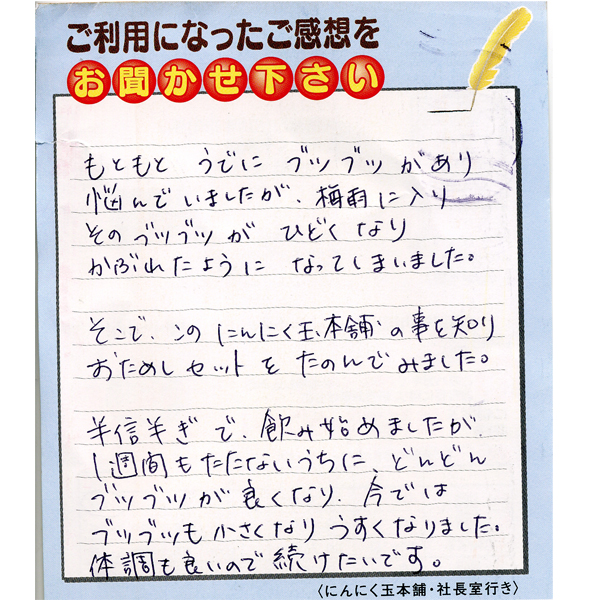 ご利用になったご感想を
お聞かせ下さい
もともと うでに ブツブツ があり
悩んで いましたが、梅雨に入り
その ブツブツ が ひどく なり
かぶれたように なってしまいました。
そこで、この にんにく玉本舗 の事を知り
おためし セット を たのんで みました。
半信半ぎ で、飲み始めましたが、
1週間も たたないうちに、どんどん
ブツブツ が 良くなり、今では
ブツブツも 小さくなり うすくなりました。
体調も良いので 続けたいです。
〈にんにく玉本舗・社長室行き〉